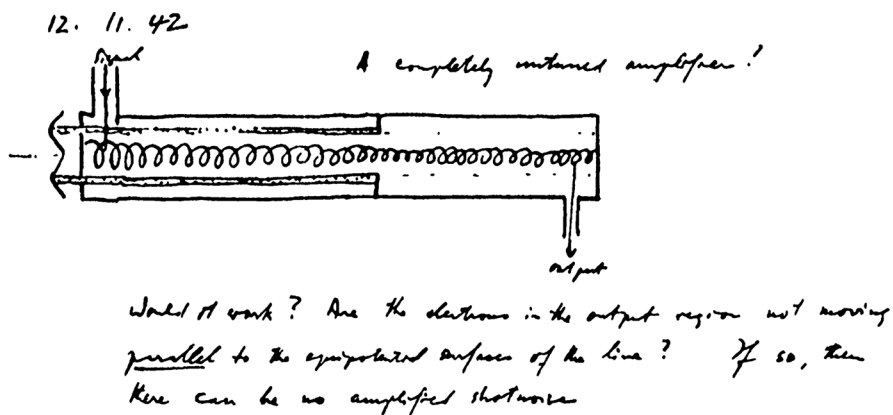 12. 11. 42
Signal
A completely untuned amplifier!
output
Would it work? Are the electrons in the output region not moving
parallel to the equipotential surfaces of the line? If so, then
there can be no amplified shot noise